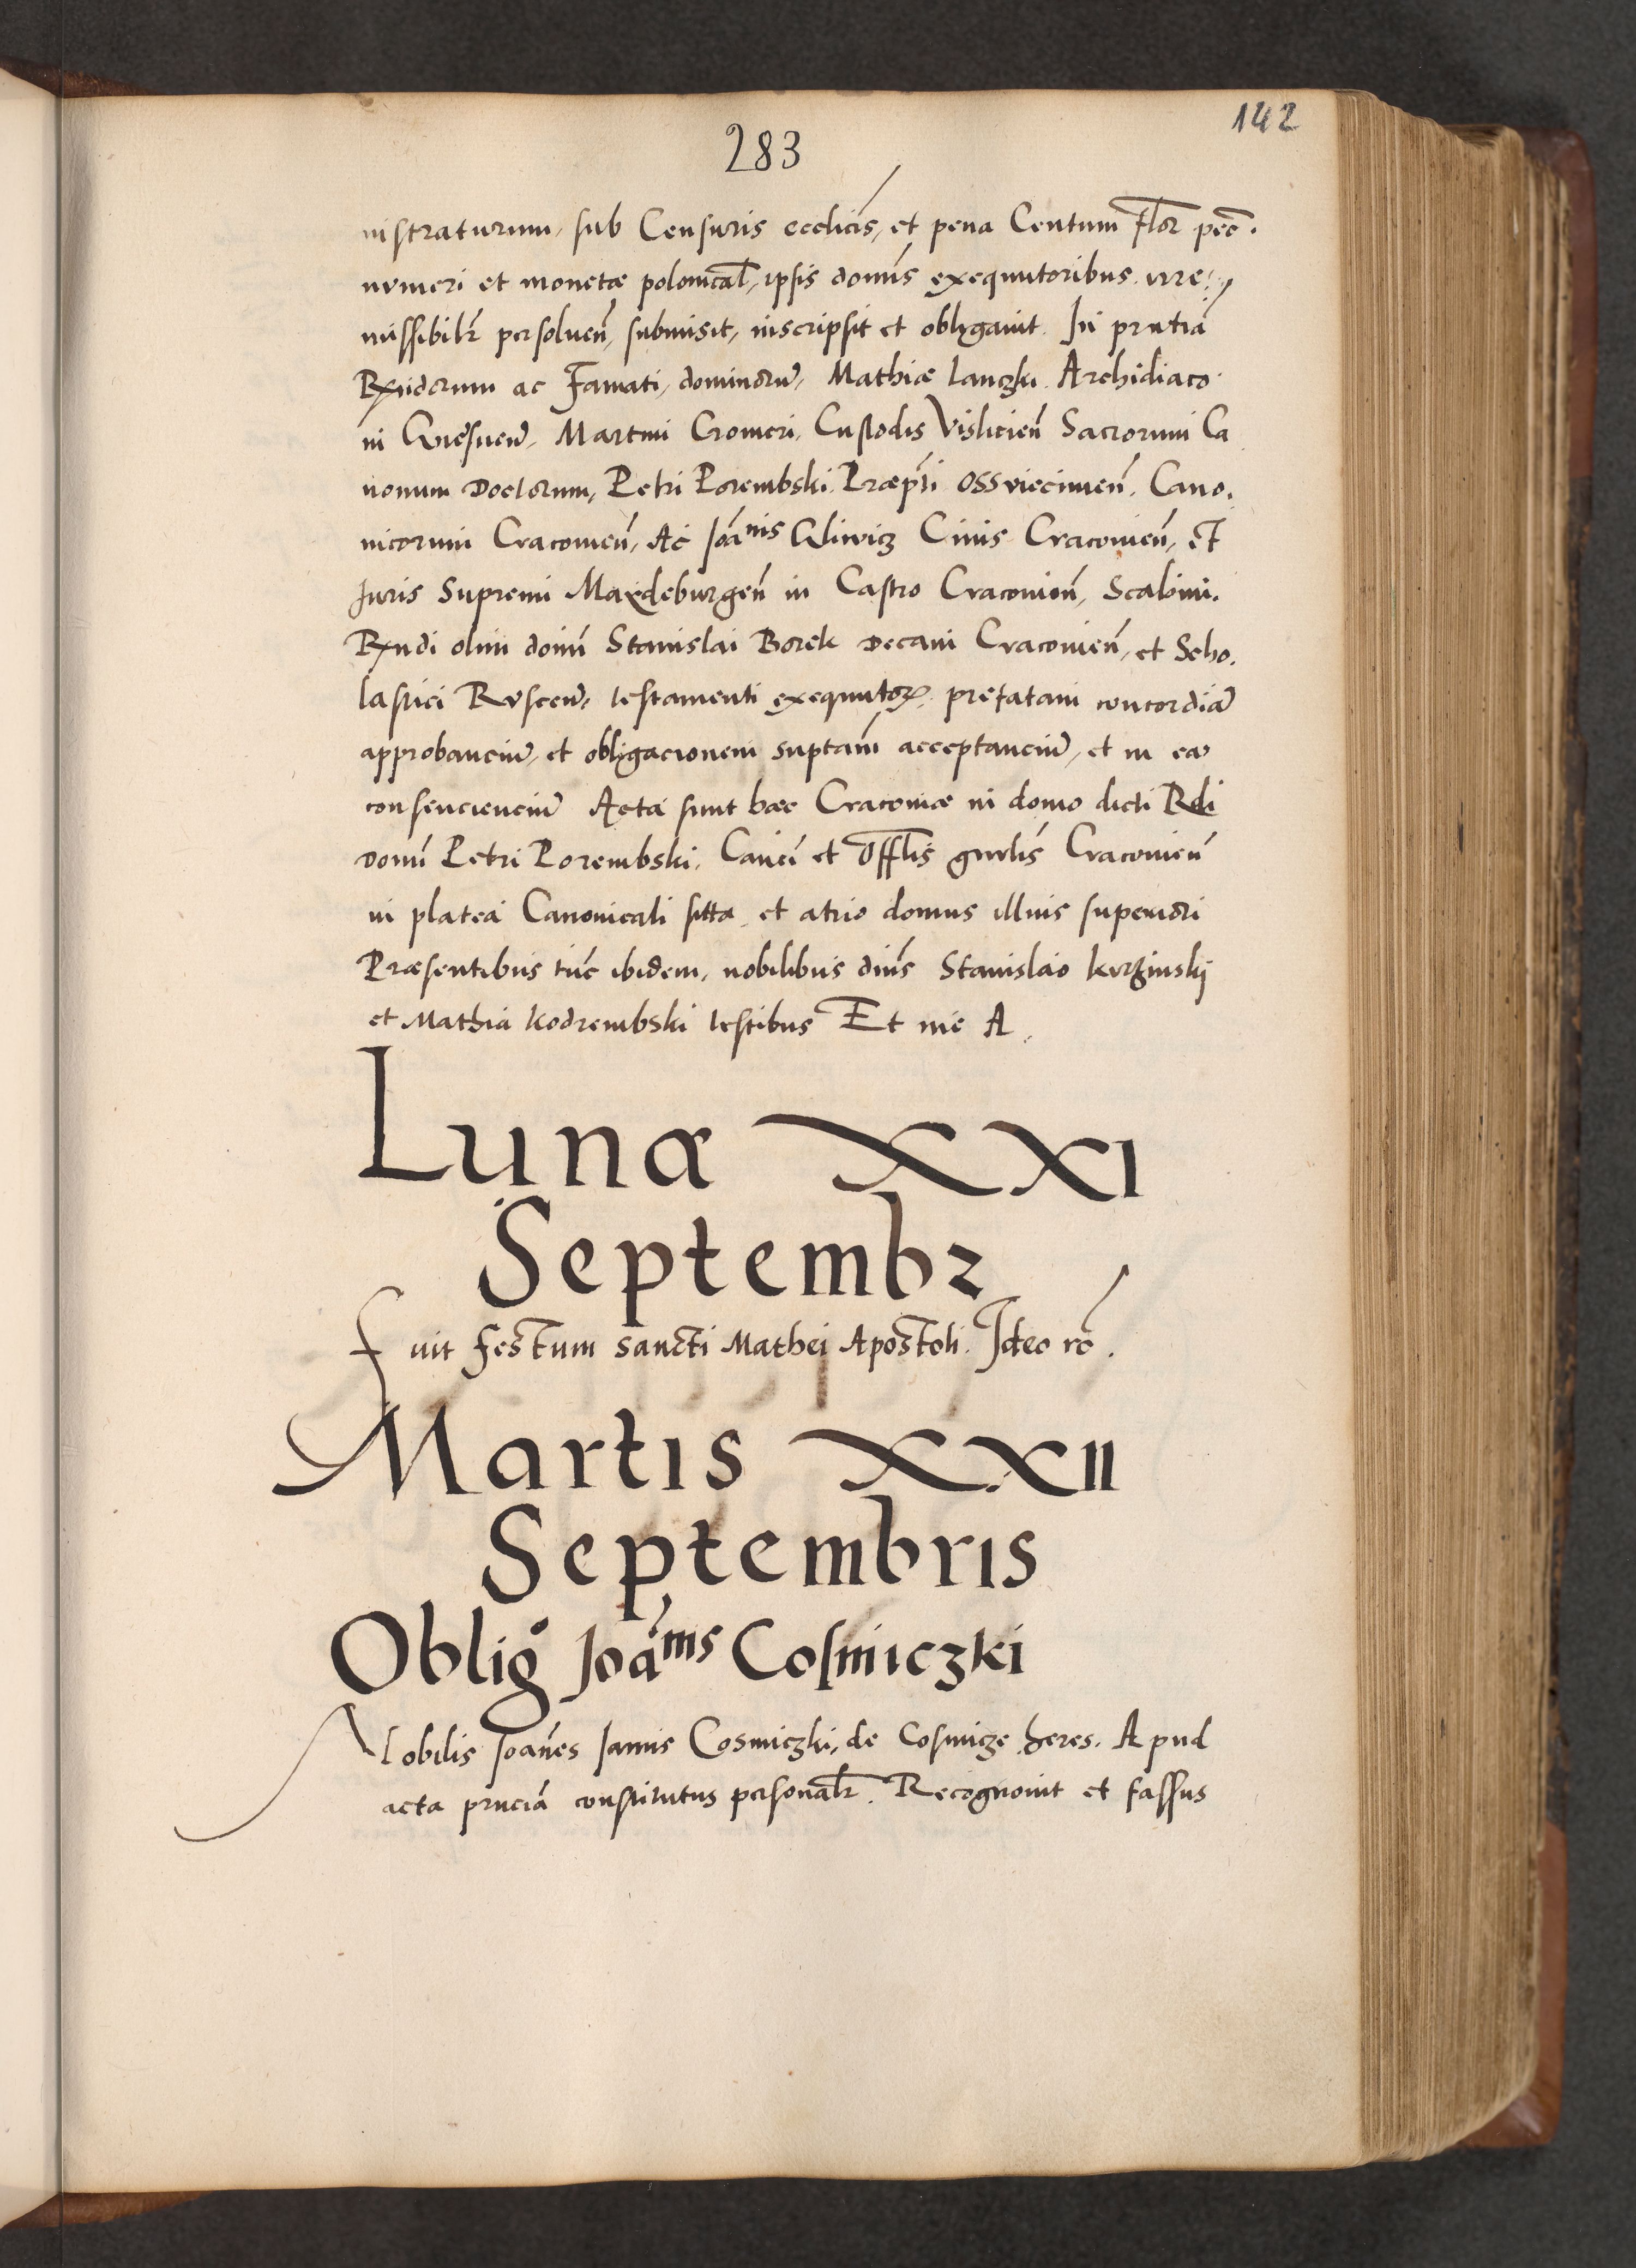 142
283
nistraturum, sub Censuris ecclicis, et pena Centum flor pec̄.
numeri et monetæ polonical, ipsis domīs exequutoribus irre
missibilr persoluen̄, submisit, inscripsit et obligauit. In pr̄ntia
Rndorum ac Famati, dominorū, Mathiæ Lanczki Archidiaco
ni Gnesnen̄, Martini Cromeri, Custodis Vislicien̄ Sacrorum Ca
nonum Doctorum, Petri Porembski Præpti Ossviecimen̄. Cano.
nicorum Cracouien̄, Ac Joānis Gliwicz Ciuis Cracouien̄, et
Juris Supremi Maydeburgen̄ in Castro Cracouien̄, Scabini.
Rndi olim domī Stanislai Borek Decani Cracouien̄, et Scho.
lastici Ruscen̄, testamenti exequutorꝝ, prefatam concordiā
approbanciū, et obligacionem suptam acceptanciū, et in eā
consencienciū Acta sunt hæc Cracouiæ in domo dicti Rdi
Domī Petri Porembski, Canci et Offlis gn̄rlis Cracouien̄
in platea Canonicali sitta, et atrio domus illius superiori
Præsentibus tūc ibidem, nobilibus dnīs Stanislao Kurzinskij
et Mathia Kodrembski testibus Et me A
Lunæ XXI
Septembr
Fuit Festum sancti Mathei Apostoli. Ideo rō.
Martis XXII
Septembris
Oblig Joānis Cosmiczki
Nobilis Joānes Jannis Cosmiczki, de Cosmicze heres. Apud
acta prn̄cia constitutus personalr. Recognouit et fassus